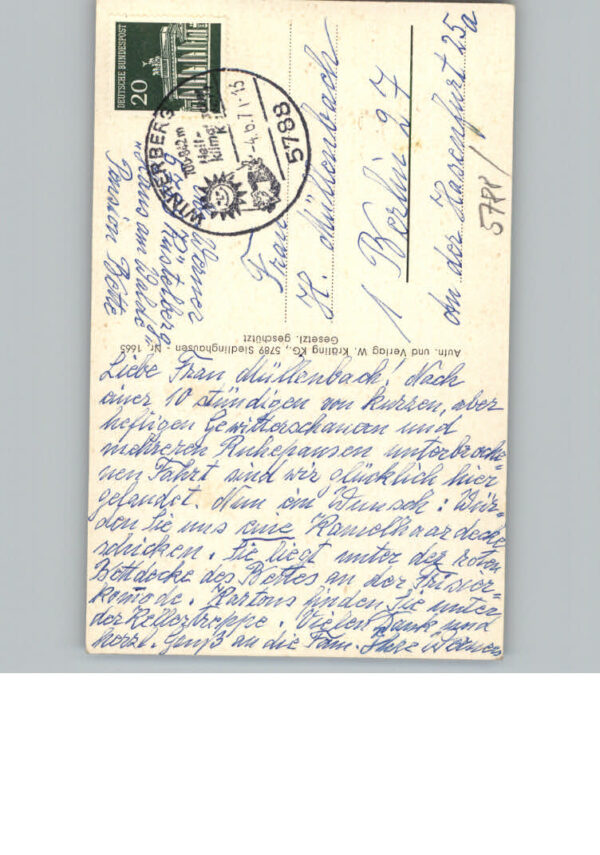 DEUTSCHE BUNDESPOST
20
WINTERBERG
5788
-4.6.71-15
Werner
Küstelberg
"Haus am Walde"
Pension
Frau
H. Müllenbach
1 Berlin 27
An der Hasenfurt 25a
5788/
Autn. und Verlag W. Kräling KG., 5789 Siedlinghausen - Nr. 1665
Gesetzl. geschützt
Liebe Frau Müllenbach! Nach
einer 10 stündigen von kurzen, aber
heftigen Gewitterschauern und
mehreren Ruhepausen unterbroche-
nen Fahrt sind wir glücklich hier
gelandet. Nun ein Wunsch: Wür-
den Sie uns eine Kamelhaardecke
schicken. Sie liegt unter der roten
Bettdecke des Bettes an der Frisier-
komode. Kartons finden Sie unter
der Kellertreppe. Vielen Dank und
herzl. Gruß an die Fam. Ihre Werners